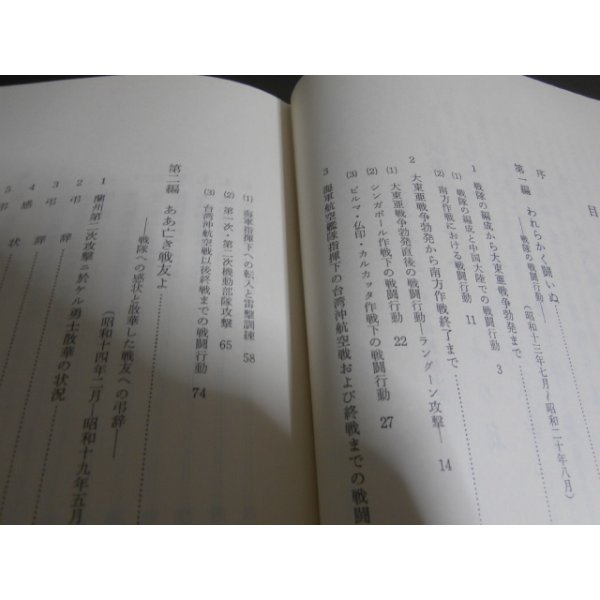 目
序
第一編 われらかく闘いぬ
――戦隊の戦闘行動――(昭和十三年七月~昭和二十年八月)
1 戦隊の編成から大東亜戦争勃発まで
(1) 戦隊の編成と中国大陸での戦闘行動 3
(2) 南方作戦における戦闘行動 11
2 大東亜戦争勃発から南方作戦終了まで
(1) 大東亜戦争勃発直後の戦闘行動―ラングーン攻撃― 14
(2) シンガポール作戦下の戦闘行動 22
(3) ビルマ・仏印・カルカッタ作戦下の戦闘行動 27
3 海軍航空艦隊指揮下の台湾沖航空戦および終戦までの戦闘
(1) 海軍指揮下への転入と雷撃訓練 58
(2) 第一次・第二次機動部隊攻撃 65
(3) 台湾沖航空戦以後終戦までの戦闘行動 74
第二編 ああ亡き戦友よ
――戦隊への感状と散華した戦友への弔辞――
(昭和十四年二月―昭和十九年五月
1 蘭州第二次攻撃ニ於ケル勇士散華の状況
2 弔辞
3 弔辞
4 感辞
5 弔状